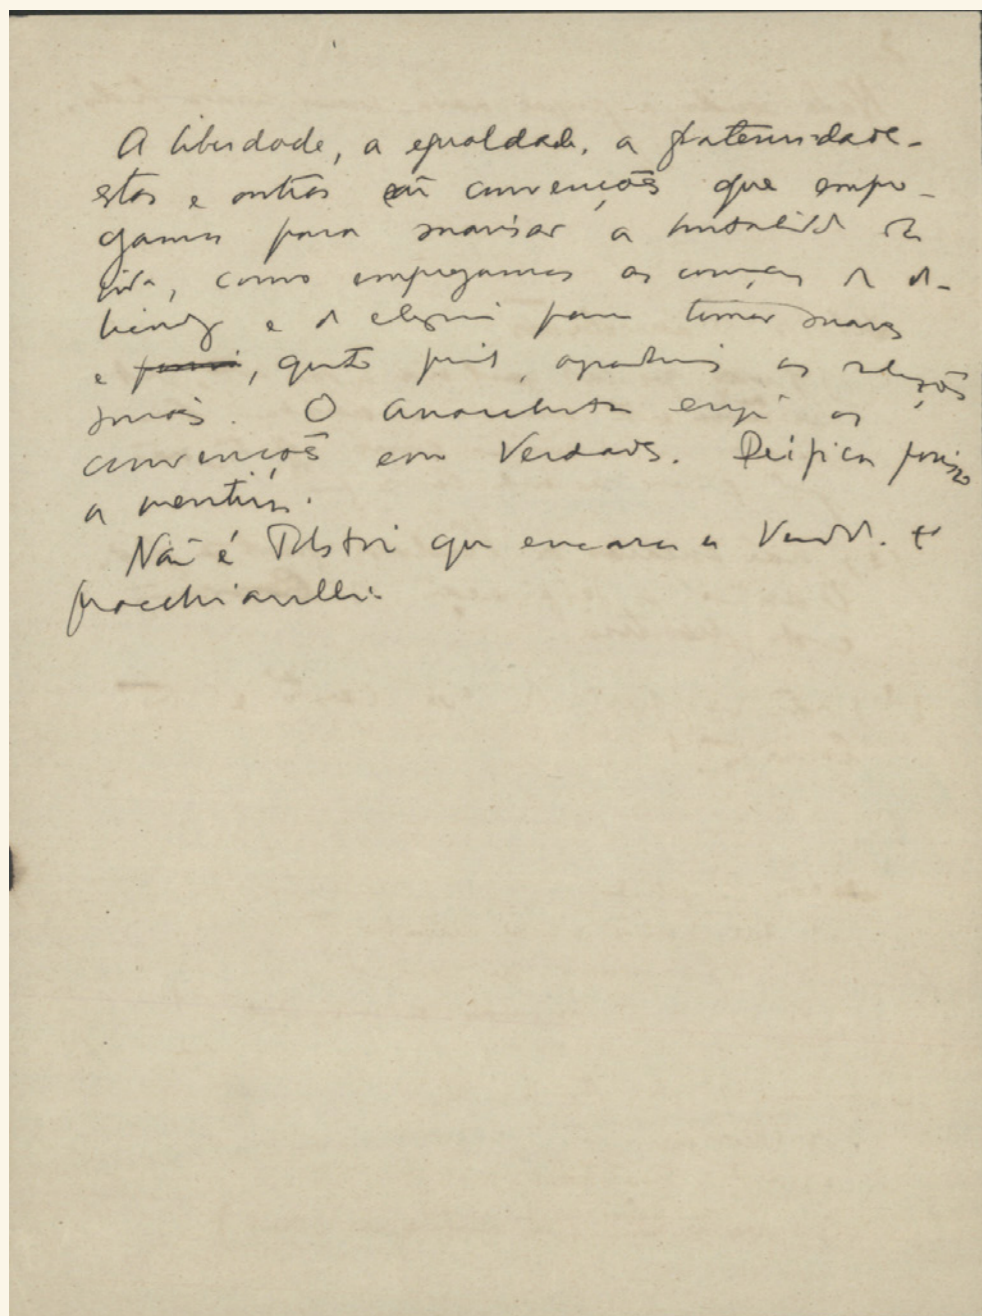 A liberdade, a egualdade, a fraternidade -
estas e outras são convenções que empre-
gamos para suavisar a brutalidd da
vida, como empregamos as convenções de de-
e de elegancia para tornar suaves
e, quanto possivel, agradaveis as relações
sociaes. O anarchista erige as
convenções em Verdades. Deifica por isso
a mentira.
Não é Tolstoi que encara a Verdd. É
Macchiavelli.